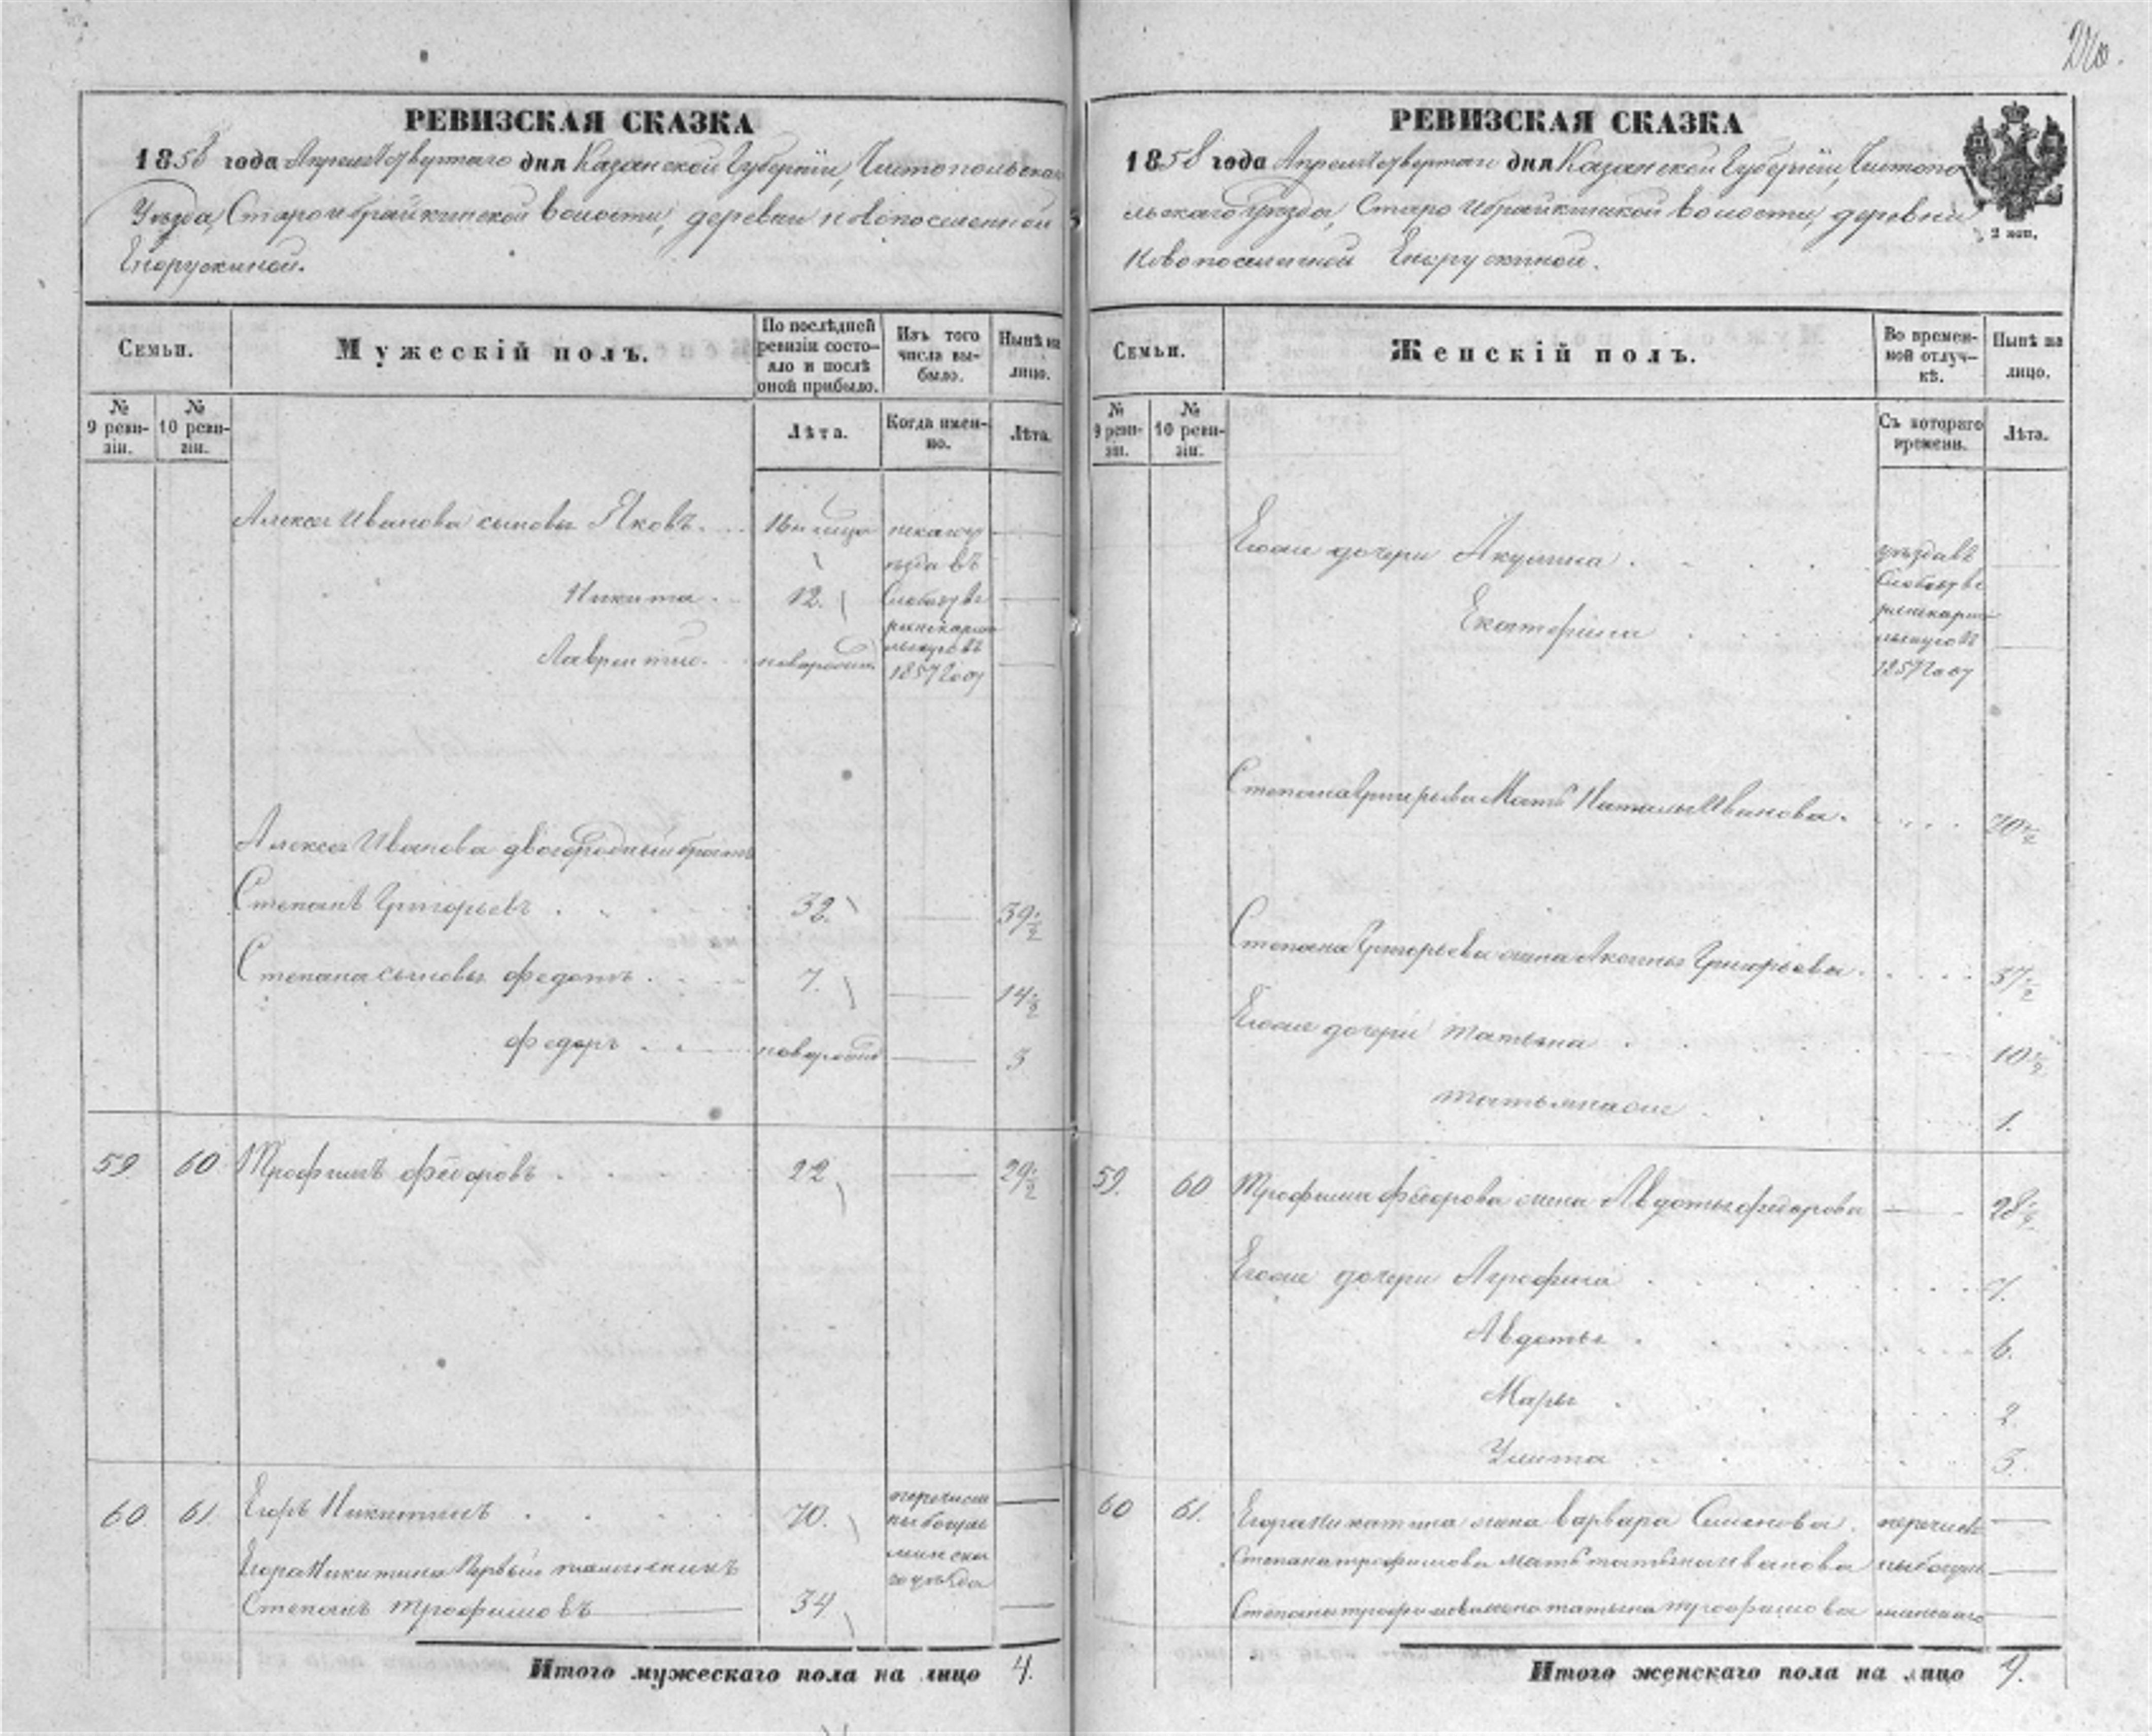 РЕВИЗСКАЯ СКАЗКА
1858 года Апреля четвертаго дня Казанской Губерніи, Чистопольскаго
Уѣзда, Староибрайкинской волости, деревни новопоселенной
Енорускиной.
Семьи.
Мужескій полъ.
По послѣдней
ревизіи состо-
яло и послѣ
оной прибыло.
Изъ того
числа вы-
было.
Нынѣ на
лицо.
№
9 реви-
зіи.
№
10 реви-
зіи.
Лѣта.
Когда имен-
но.
Лѣта.
Алексея Иванова сыновья Яковъ.
Никита. 12.
Лаврентие. новорожден
1857 году
Алексея Иванова двоюродный братъ
Степанъ Григорьевъ 32. 39½
Степана сыновья Федотъ. 7. 14½
Федоръ новорожден 3
59. 60 Трофимъ Федоровъ 22 29½
60. 61 Егоръ Никитинъ 70.
Егора Никитина первый племянникъ
Степанъ Трофимовъ 34
Итого мужескаго пола на лицо 4.
226.
РЕВИЗСКАЯ СКАЗКА
1858 года Апреля четвертаго дня Казанской Губерніи, Чистопо
льскаго Уѣзда, Староибрайкинской волости, деревни
Новопоселенной Енорускиной.
2 коп.
Семьи.
Женскій полъ.
Во времен-
ной отлуч-
кѣ.
Нынѣ на
лицо.
№
9 реви-
зіи.
№
10 реви-
зіи.
Съ котораго
времени.
Лѣта.
Егоже дочери Акулина
Екатерина
1857 году
Степана Григорьева Мать Наталья Иванова. 70½
Степана Григорьева жена Аксинья Григорьева. 37½
Егоже дочери Татьяна 10½
Татьяна же 1.
59. 60 Трофима Федорова жена Авдотья Федорова 28½
Егоже дочери Агрофина 7.
Авдотья 6.
Марья 2.
Улита 3.
60 61. Егора Никитина жена Варвара Семенова. перечисле
Степана Трофимова мать Татьяна Иванова ны бугуль
Степана Трофимова жена Татьяна Трофимова минскаго
Итого женскаго пола на лицо 9.